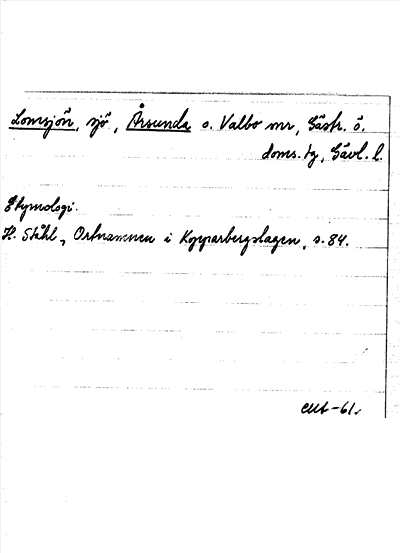 Lomsjön, sjö, Årsunda o. Valbo snr, Gästr. ö.
doms. tg, Gävl. l.
Etymologi.
H. Ståhl, Ortnamnen i Kopparbergslagen, s. 84.
-61.